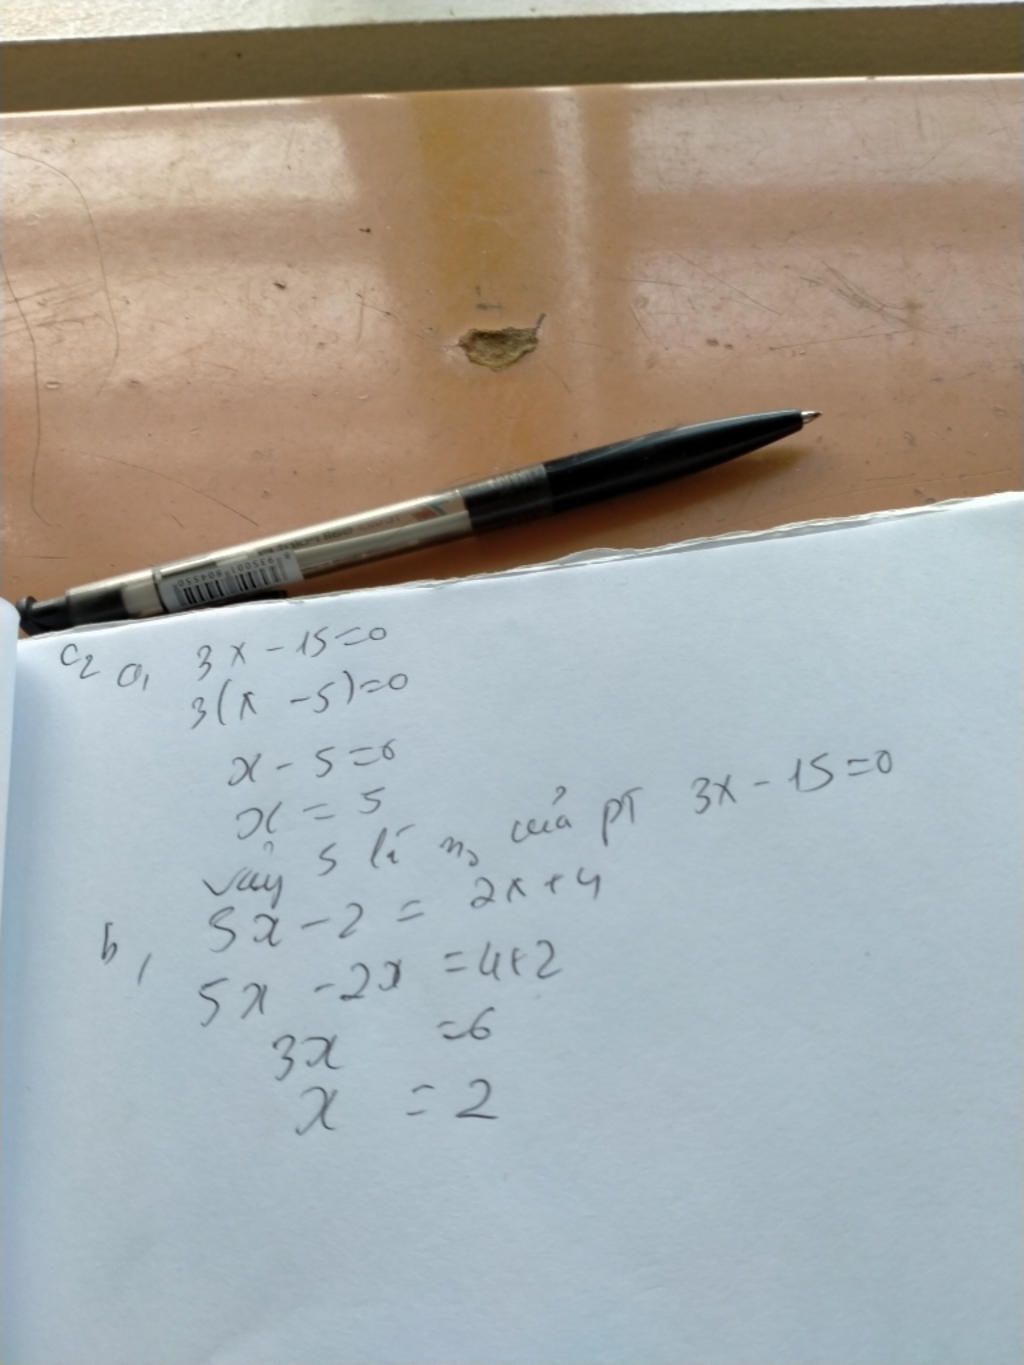 8935001804550
C2 a, 3x - 15 = 0
3(x - 5) = 0
x - 5 = 0
x = 5
vậy 5 là n0 của PT 3x - 15 = 0
b, 5x - 2 = 2x + 4
5x - 2x = 4 + 2
3x = 6
x = 2